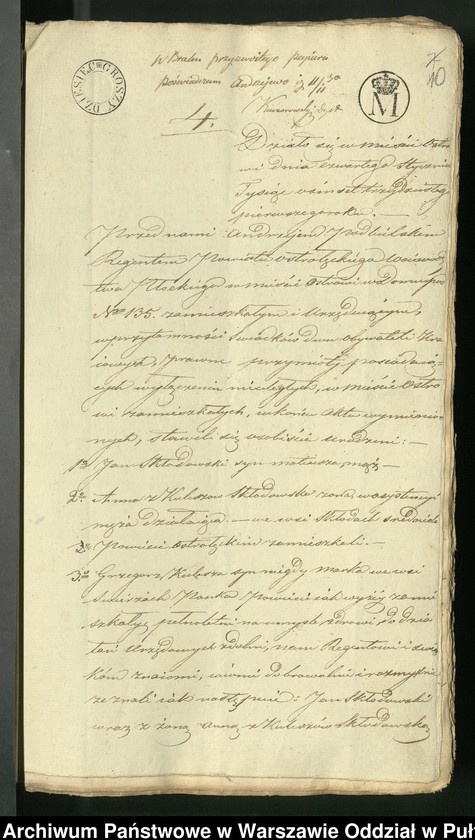 DZIESIĘĆ GROSZY
M
10
W Braku przyzwoitego papieru
poświadczam Andrzejewo
4.
Działo się w mieście Ostro
wi dnia czwartego stycznia
Tysiąc ośmset trzydziestego
pierwszego roku. —
Przed nami Andrzejem Podbielskim
Regentem Powiatu ostrołęckiego Wojewodz
twa Płockiego w mieście Ostrowi w Domu pod
Nrem 135. zamieszkałym i urzędującym
w przytomności świadków dwu obywateli Kra
iowych, prawem przymioty posiadaią-
cych wyłączeniu nieuległych, w mieście Ostro
wi zamieszkałych, w końcu Aktu wymienio-
nych, stawili się osobiście urodzeni: —
1o Jan Skłodowski syn Mateusza, mąż —
2o Anna z Kuleszów Skłodowska żona, w asystencyi
męża działaiąca. — we wsi Skłodach średnich
Powiecie ostrołęckim zamieszkali. —
3o Grzegorz Kulesza syn niegdy Marka we wsi
Powiecie iak wyżey zamie
szkały, pełnoletni na umyśle zdrowi, do dzia
łań urzędowych zdolni, nam Regentowi i świad
ków znaiomi, iawnie dobrowolnie i rozmyślnie
zeznali iak następuie: Jan Skłodowski
wraz z żoną Anną z Kuleszów Skłodowską
Archiwum Państwowe w Warszawie Oddział w Puł